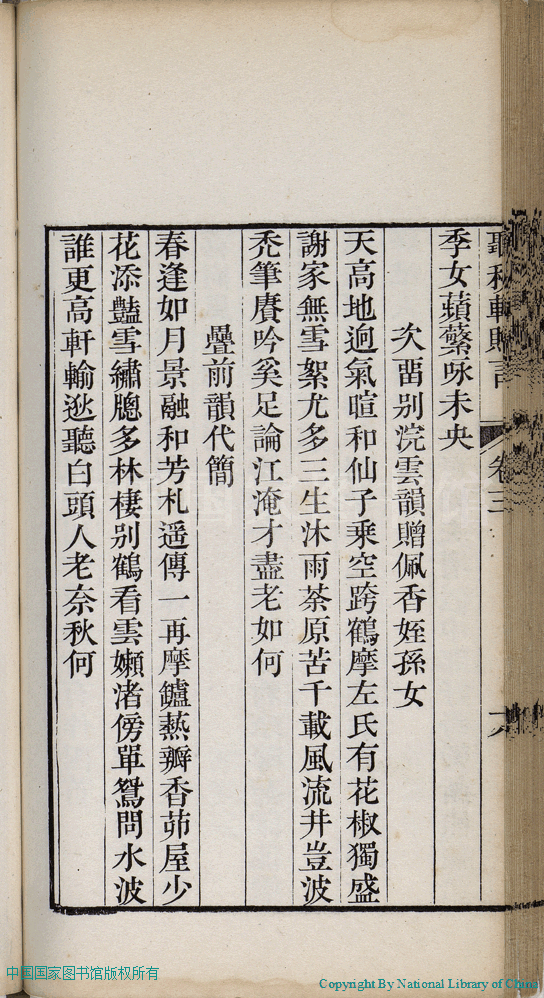 聽秋軒贈言 卷三
季女蘋蘩咏未央
次畱别浣雲韻贈佩香姪孫女
天高地逈氣暄和仙子乘空跨鶴摩左氏有花椒獨盛
謝家無雪絮尤多三生沐雨荼原苦千載風流井豈波
禿筆賡吟奚足論江淹才盡老如何
疊前韻代簡
春逢如月景融和芳札遥傳一再摩鑪爇瓣香茆屋少
花添豔雪繡牕多林棲别鶴看雲嬾渚傍單鴛問水波
誰更高軒輸逖聽白頭人老奈秋何
中国国家图书馆版权所有
Copyright By National Library of China